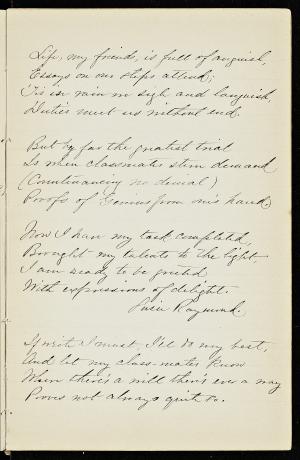 Life, my friend, is full of anguish,
Essays on our steps attend;
'Tis in vain we sigh and languish,
Duties meet us without end.
But by far the greatest trial
Is when classmates stern demand
(Countenancing no denial)
Proofs of Genius from one's hand.
Now I have my task completed,
Brought my talents to the light,
I am ready to be greeted
With expressions of delight.
Raymond.
If write I must, I'll do my best,
And let my class-mates know
Where there's a will there's ever a way
Proves not always quite so.